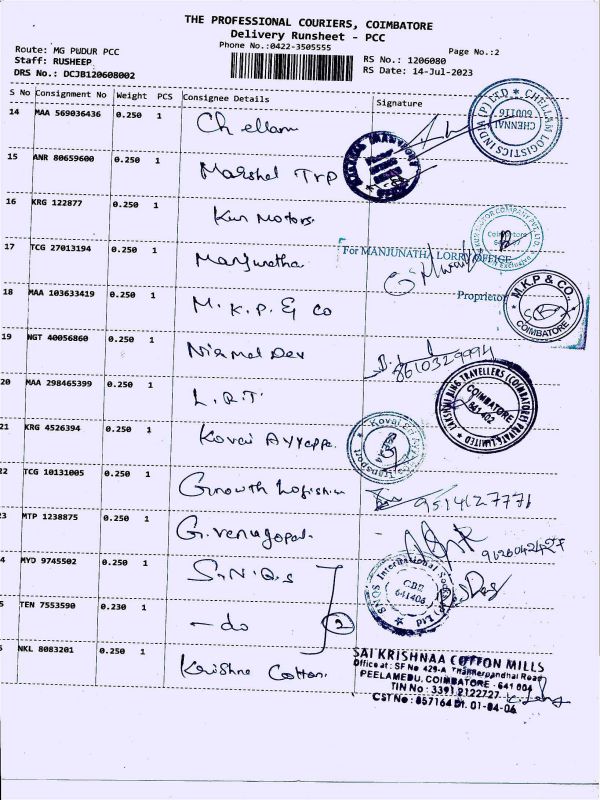 THE PROFESSIONAL COURIERS, COIMBATORE
Delivery Runsheet - PCC
Phone No.:0422-3505555
Page No.:2
Route: MG PUDUR PCC
Staff: RUSHEEP
DRS No.: DCJB120608002
RS No.: 1206080
RS Date: 14-Jul-2023
S No Consignment No Weight PCS Consignee Details Signature
14 MAA 569036436 0.250 1 Chellam
CHELLAM LOGISTICS INDIA (P) LTD
CHENNAI
600116
15 ANR 80659600 0.250 1 Marshel Trp
16 KRG 122877 0.250 1 Kun Motors.
Coimbatore
17 TCG 27013194 0.250 1 Manjunatha
For MANJUNATHA LORRY OFFICE
Proprietor
18 MAA 103633419 0.250 1 M.K.P. & Co
M.K.P & CO.,
COIMBATORE
19 NGT 40056860 0.250 1 Nirmal Dev
8610329994
20 MAA 298465399 0.250 1 L.R.T.
COIMBATORE
641 402
21 KRG 4526394 1 Kovai Ayyappa
22 TCG 10131005 0.250 1 Growth Logistics
9514127771
23 MTP 1238875 0.250 1 G. Venugopal.
4 MYD 9745502 0.250 1 S.N.Q.S
SNQS International Socks (P) Ltd
CBE
641406
5 TEN 7553590 0.230 1 - do
2
6 NKL 8083201 0.250 1 Krishna Cotton.
SAI KRISHNAA COTTON MILLS
Office at : SF No 429-A Road
PEELAMEDU, COIMBATORE - 641 004
TIN No : 3391 2122727
CST No : 857164 Dt. 01-04-04